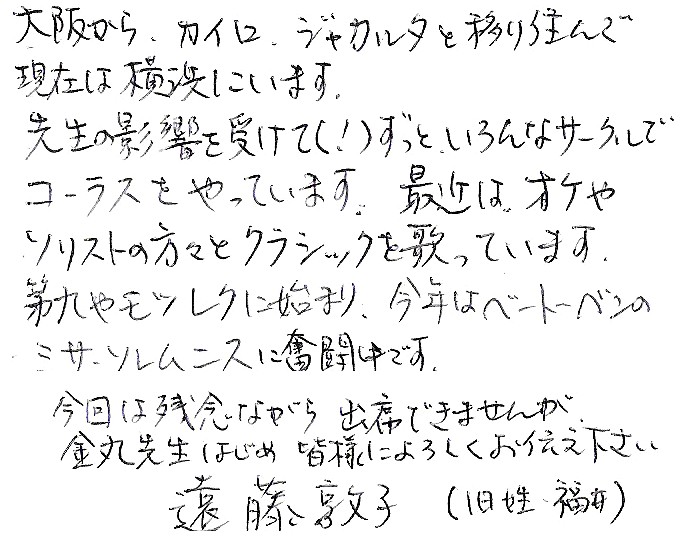 大阪から、カイロ、ジャカルタと移り住んで
現在は横浜にいます。
先生の影響を受けて(！)ずっと、いろんなサークルで
コーラスをやっています。最近は、オケや
ソリストの方々とクラシックを歌っています。
第九やモツレクに始まり、今年はベートーベンの
ミサ・ソレムニスに奮闘中です。
今回は残念ながら出席できませんが、
金丸先生はじめ皆様によろしくお伝え下さい
遠藤敦子 (旧姓・福井)